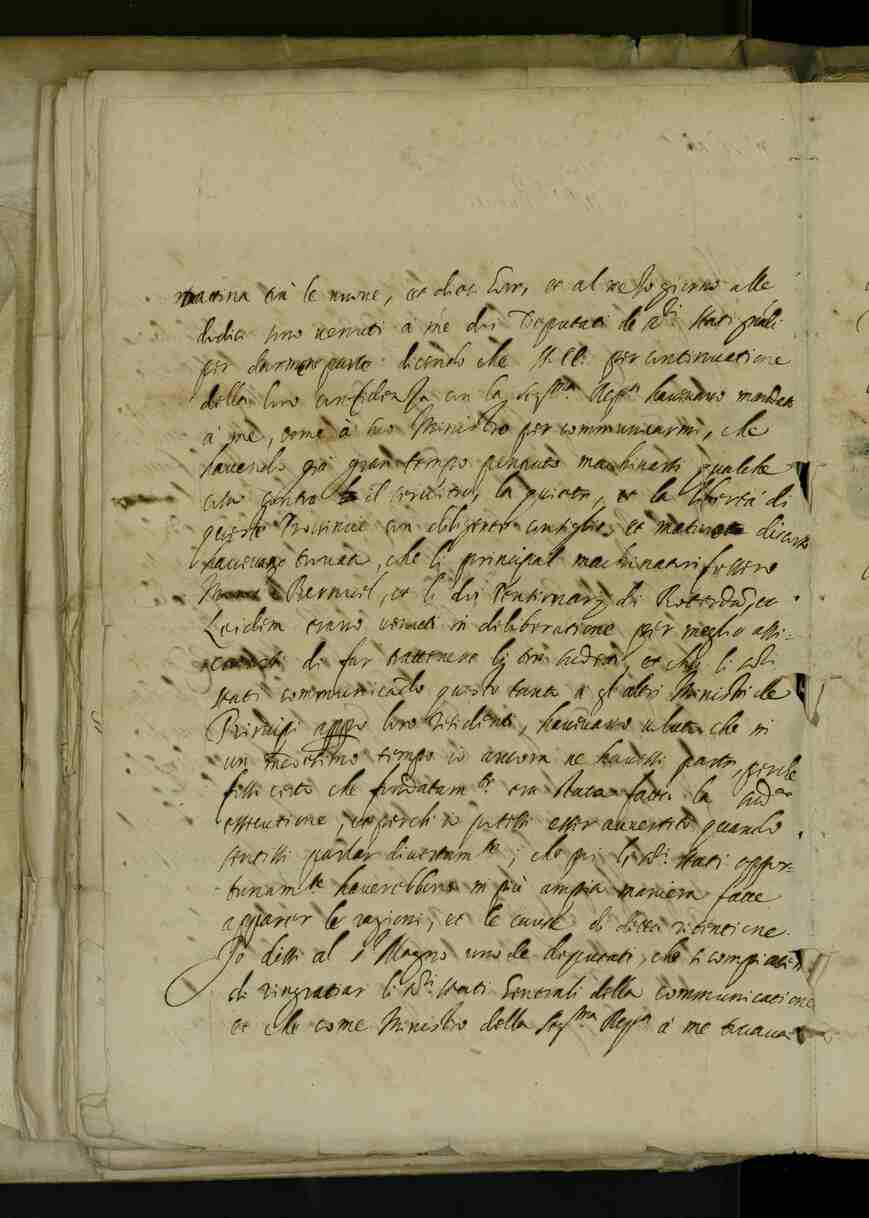 mattina trà le nuove, et dieci hore, et al mezo giorno alle
dodici sono venuti à me dui Deputati de ss.ri Stati g̃nali
per darmene parte dicendo che SS.EE. per continuatione
della loro confidenza con la Ser.ma Rep.ca havevano mandato
à me, come à suo Ministro per communicarmi, che
havendo già gran tempo penetrato machinarsi qualche
cosa contra il servitio, la quiete, et la libertà di
queste Provincie con diligente consiglio, et maturo discorso
havevano trovato, che li principal machinatori fossero
Barnvelt, et li dui Pentionarij di Roterdam, et
Leidem erano venuti in deliberatione per meglio assi=
curarsi di far trattener li tre sudetti, et che li ss.ri
stati communicando questo tanto à gl'altri Ministri de
Principi appo loro residenti, havevano voluto che in
un medesimo tempo io ancora ne havessi parte, perche
fossi certo che fondatam.te era stata fatta la sud.ta
essecutione, et perche io potessi esser avvertito quando
sentissi parlar diversam.te; che poi li ss.ri stati oppor=
tunam.te haverebbero in più ampia maniera fatte
apparer le ragioni, et le cause di detta ritentione.
Io dissi al s.r Magno uno de deputati, che si compiacesse
di ringratiar li ss.ri stati Generali della communicatione
et che come Ministro della Ser.ma Rep.ca à me toccava